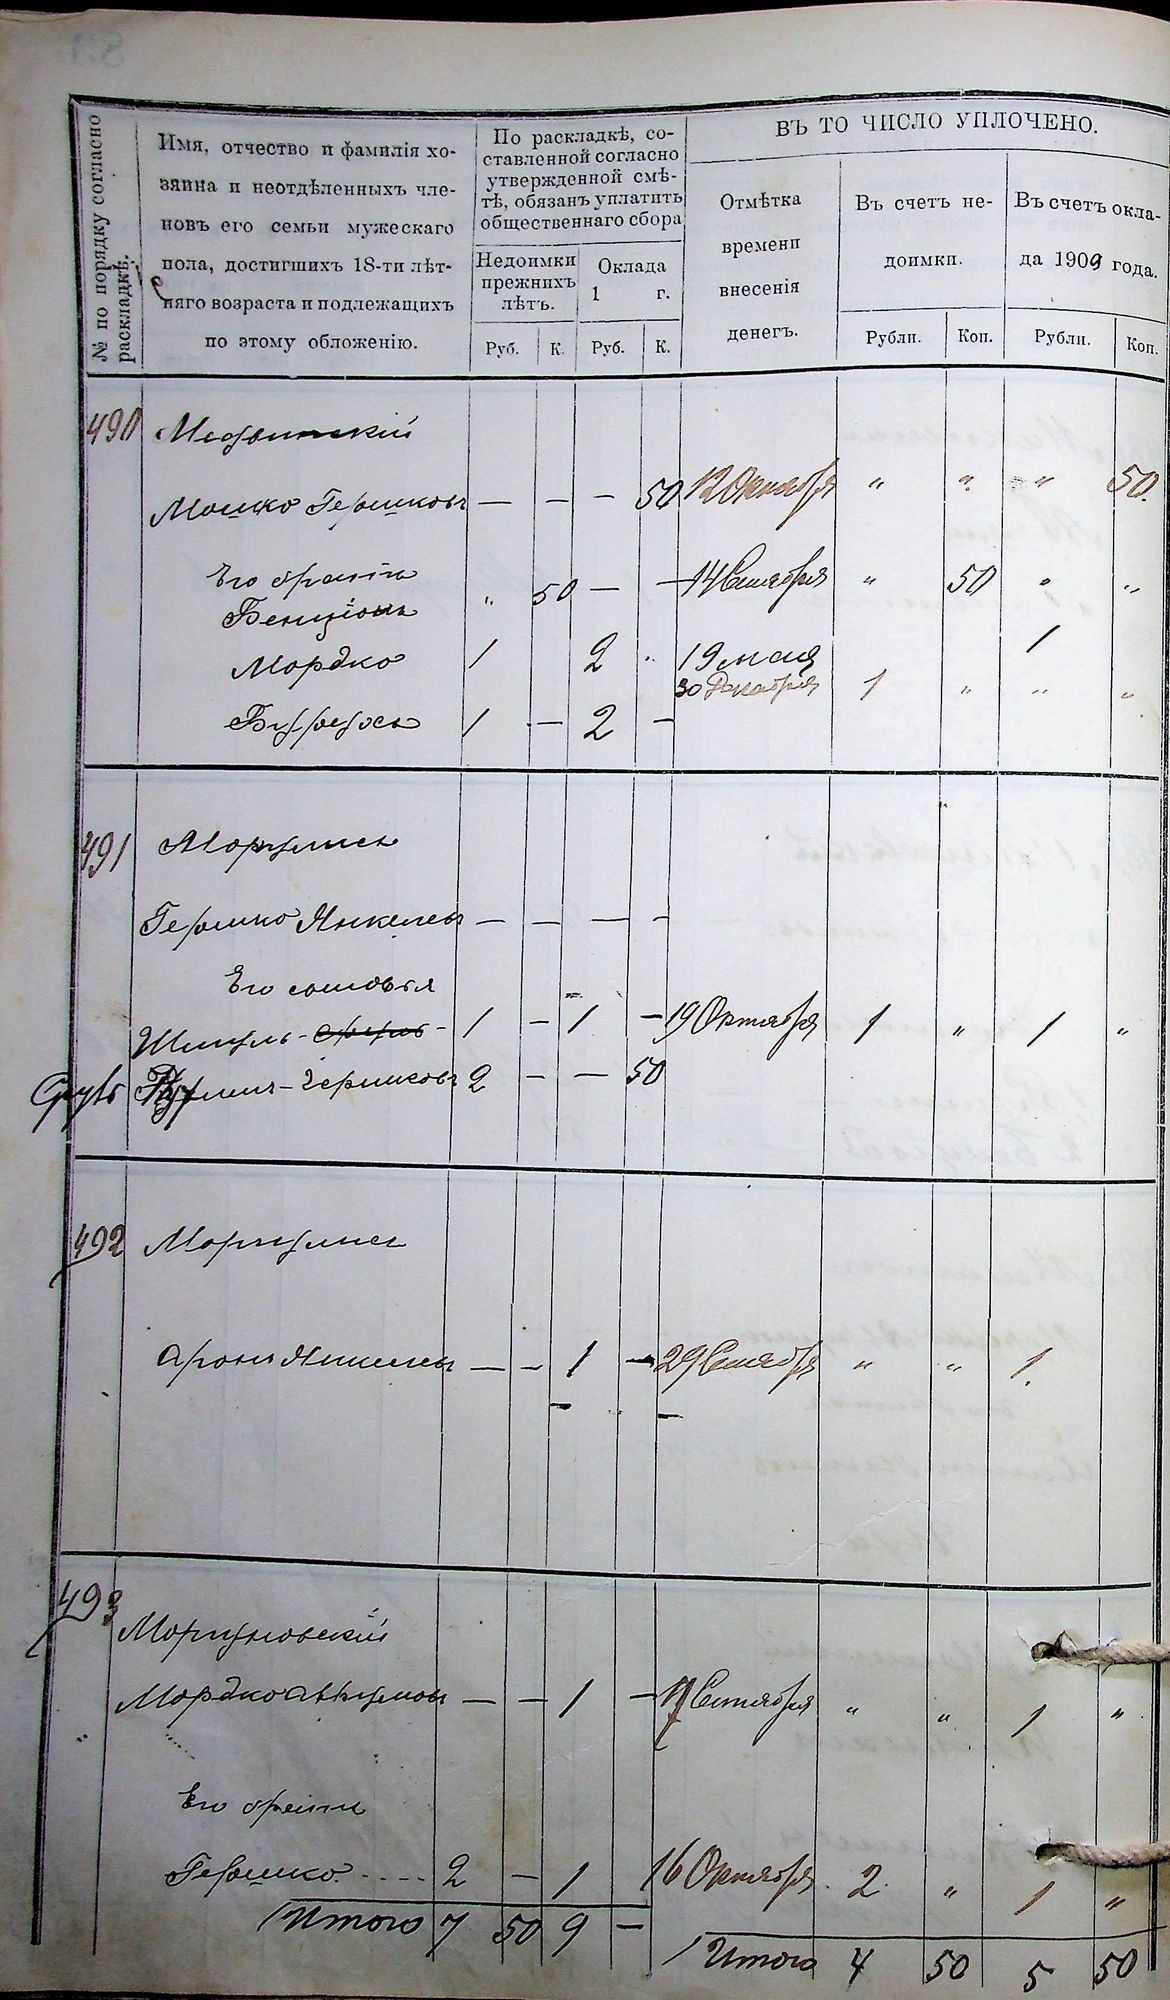 № по порядку согласно
раскладкѣ.
Имя, отчество и фамилія хо-
зяина и неотдѣленныхъ чле-
новъ его семьи мужескаго
пола, достигшихъ 18-ти лѣт-
няго возраста и подлежащихъ
по этому обложенію.
По раскладкѣ, со-
ставленной согласно
утвержденной смѣ-
тѣ, обязанъ уплатить
общественнаго сбора
Недоимки
прежнихъ
лѣтъ.
Оклада
1 г.
Руб. К. Руб. К.
ВЪ ТО ЧИСЛО УПЛОЧЕНО.
Отмѣтка
времени
внесенія
денегъ.
Въ счетъ не-
доимки.
Въ счетъ окла-
да 1909 года.
Рубли. Коп. Рубли. Коп.
490 Медвинскій
Мошко Гершковъ — — — 50 12 Октября " " " 50
Его братья
Бенціонъ " 50 — — 14 Сентября " 50 " "
Мордко 1 2 " 19 мая 1
30 Декабря 1 " " "
1 — 2 —
491 Моргулисъ
Гершко Янкелевъ — — — —
Его сыновья
Шмуль - 1 — 1 — 19 Октября 1 " 1 "
Гершковъ 2 — — 50
492 Моргулисъ
Аронъ Янкелевъ — — 1 — 29 Сентября " " 1
493
Моргуновскій
Мордко — — 1 — 17 Сентября " " 1 "
Его братъ
Гершко 2 — 1 16 Октября 2 " 1 "
Итого 7 50 9 —
Итого 4 50 5 50